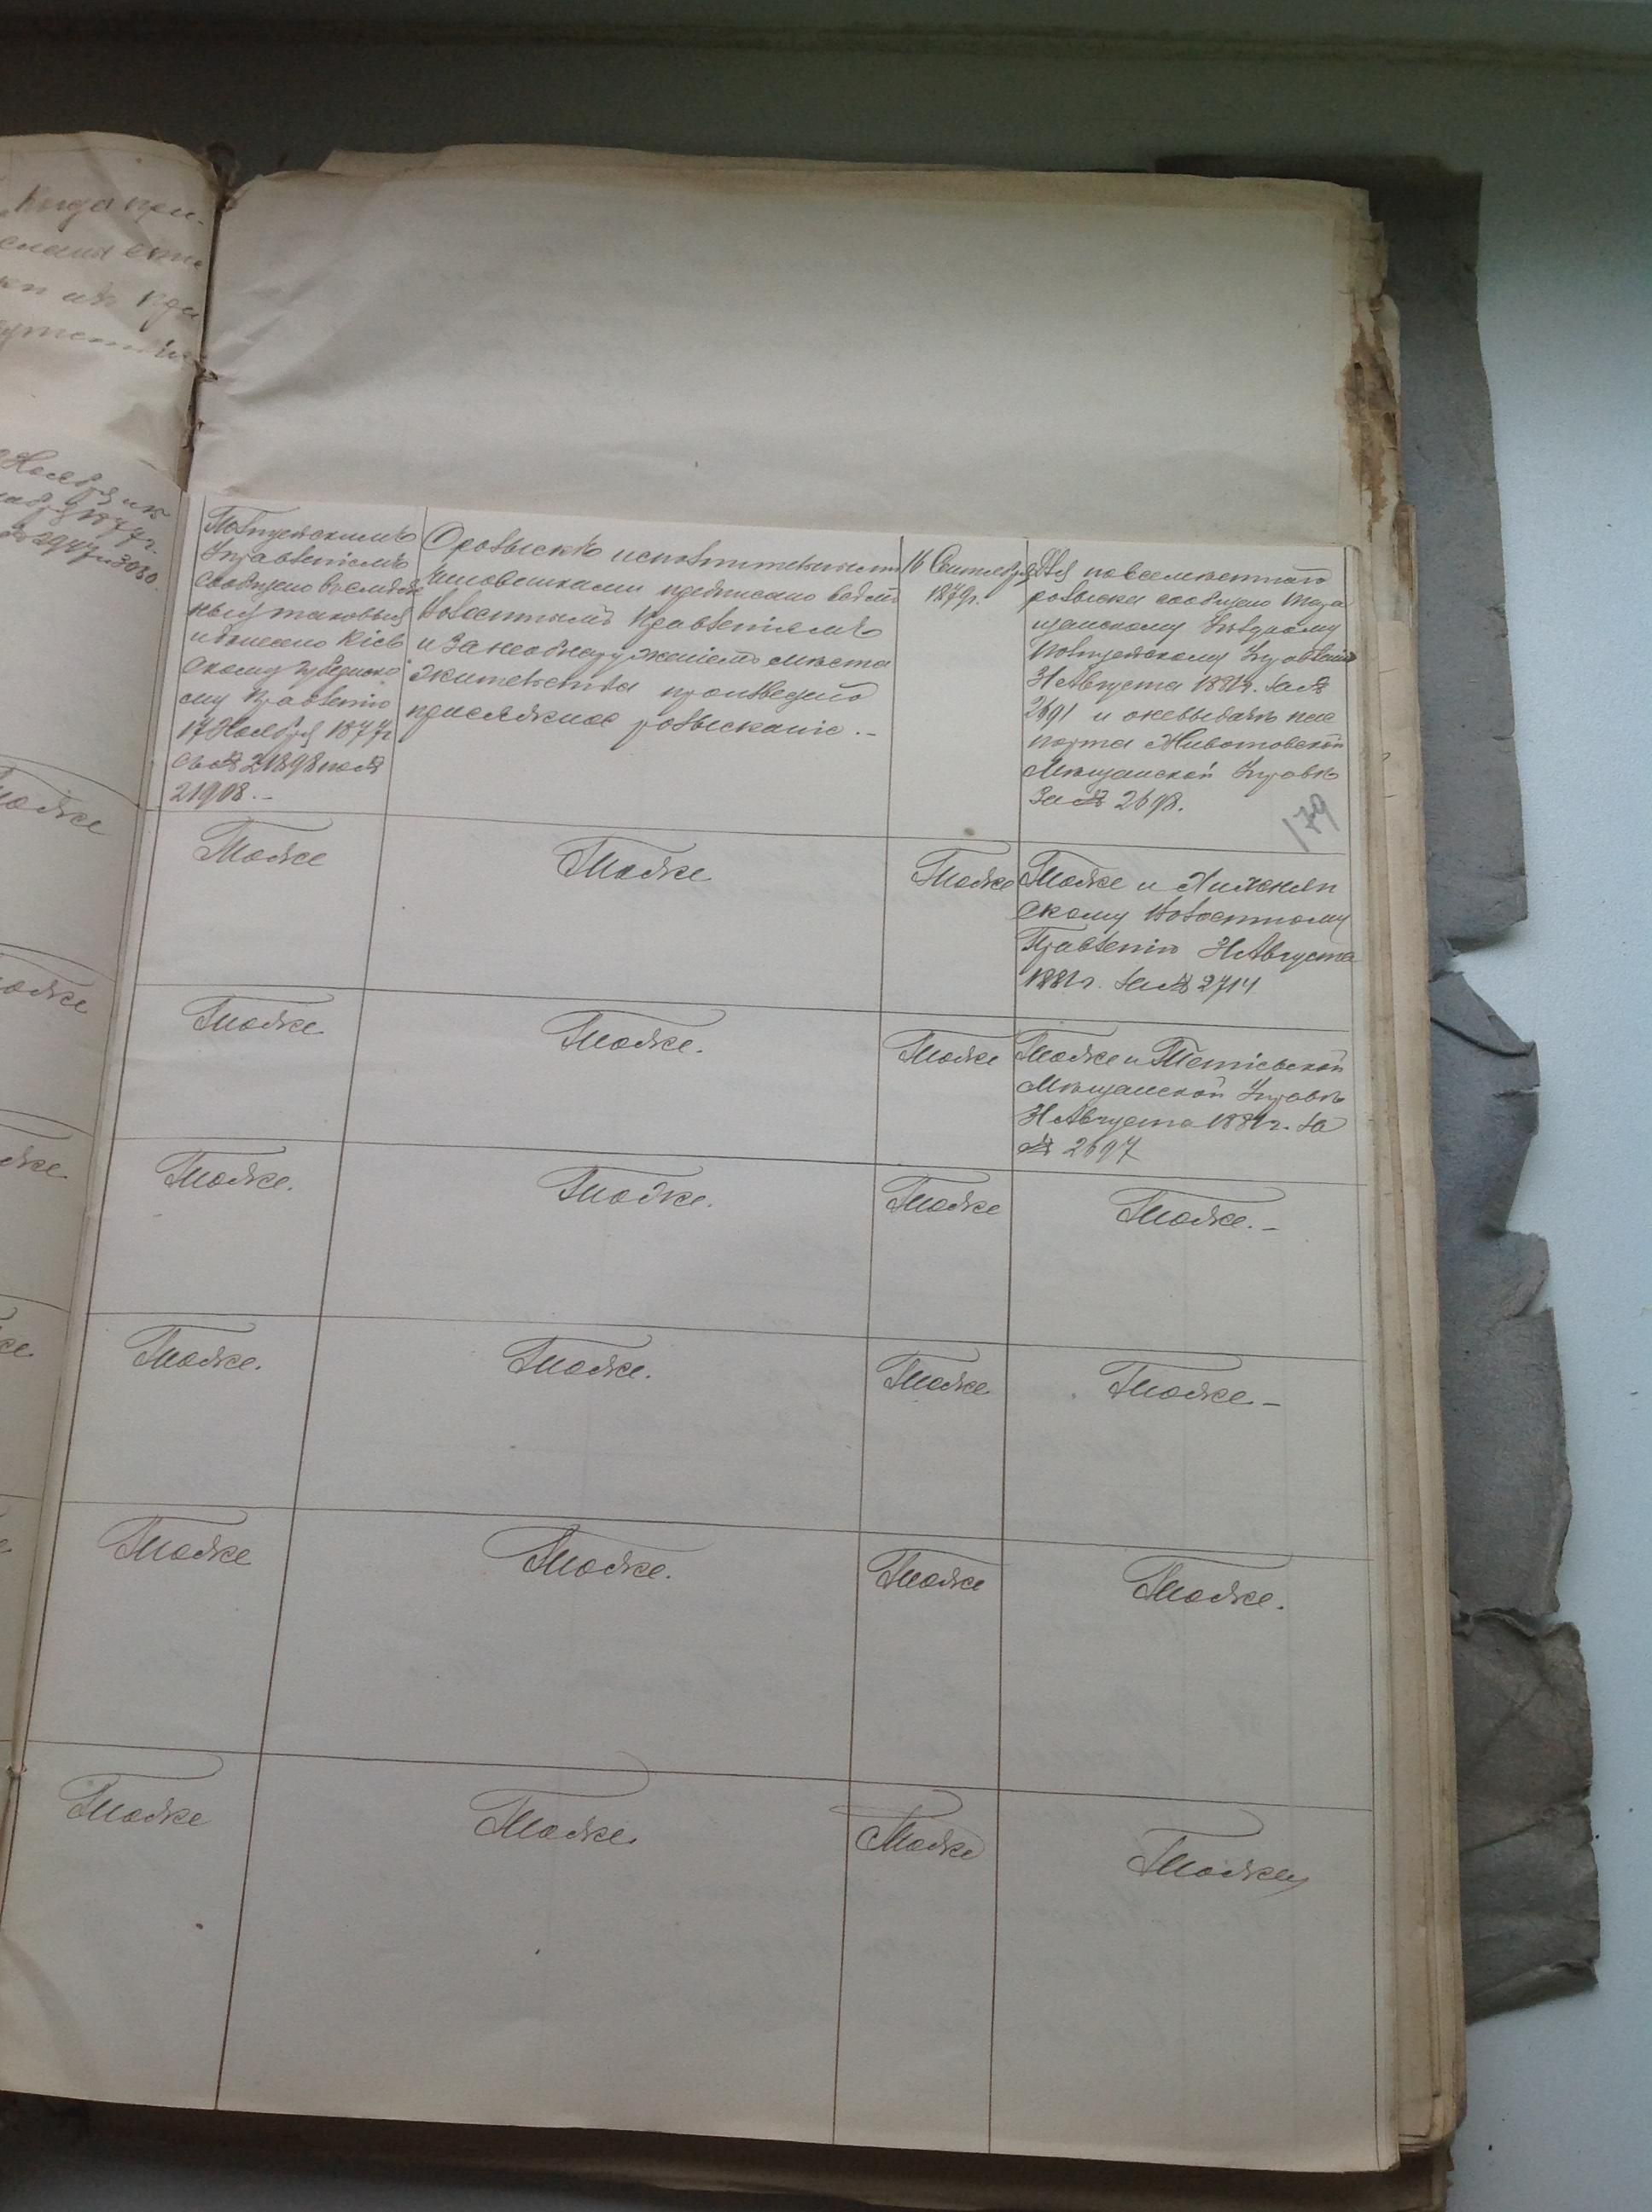 Когда при-
Ноября и
1877 г.
2947 и 3080.
Полицейскимъ
Управленіемъ
сообщено
ныя таковыя
и донесено Кіев
скому Губернско
му Правленію
17 Ноября 1877 г
съ № 21898 по №
21908.-
О розыскѣ исполнительными
чиновниками предписано всѣмъ
Волостнымъ Правленіямъ
и за необнаруженіемъ мѣста
жительства произведено
присяжное розысканіе.-
16 Сентября
1879 г.
Для повсемѣстнаго
розыска сообщено Тара
щанскому Уѣздному
Полицейскому Управленію
31 Августа 1881 г. за №
2691 и о невыдачѣ пас
порта Животовской
Мѣщанской Управѣ
за № 2698.
179
Тоже
Тоже
Тоже
Тоже
Тоже и
скому Волостному
Правленію 31 Августа
1881 г. за № 2714
Тоже
Тоже
Тоже.
Тоже
Тоже и Тетіевской
Мѣщанской Управѣ
31 Августа 1881 г. за
№ 2697
Тоже.
Тоже.
Тоже
Тоже.-
Тоже.
Тоже.
Тоже
Тоже-
Тоже
Тоже.
Тоже
Тоже.
Тоже
Тоже
Тоже
Тоже